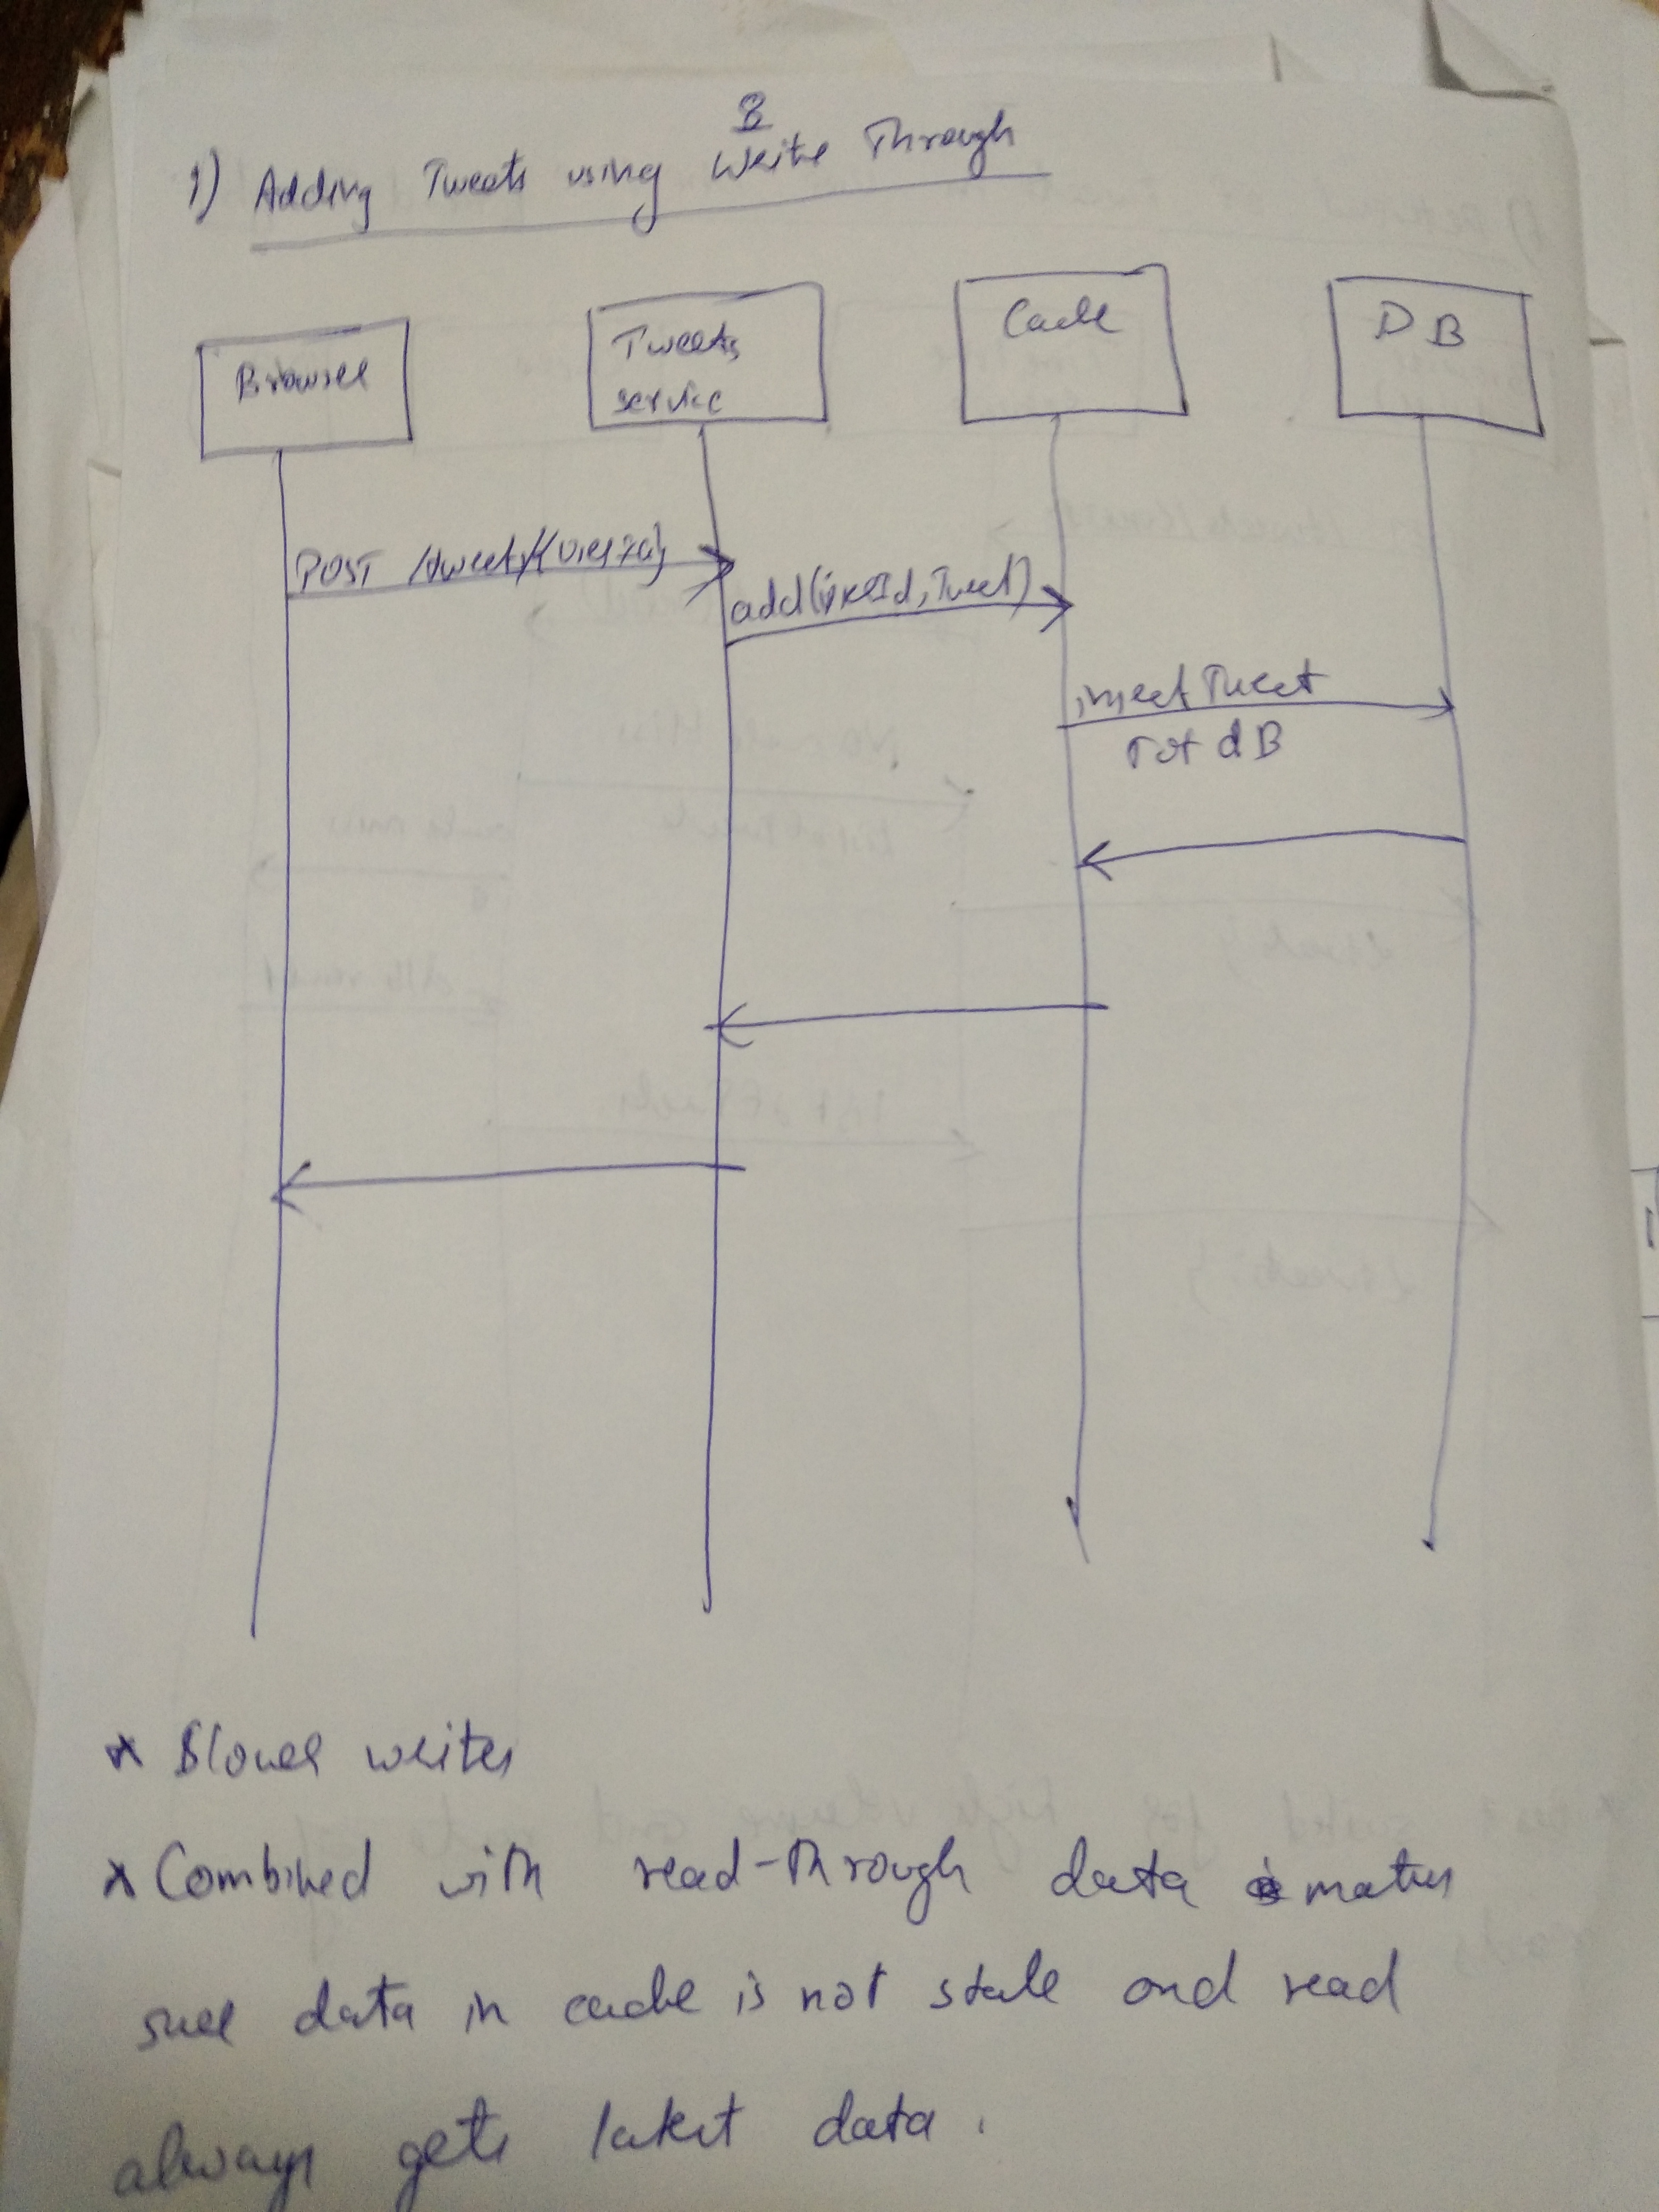 8
1) Adding Tweets using Write Through
Browser
Tweets
service
Cache
DB
POST /tweet/{userId}
add(userId, Tweet)
insert Tweet
Tot dB
* Slower writes
* Combined with read-Through data makes
sure data in cache is not stale and read
always gets latest data.